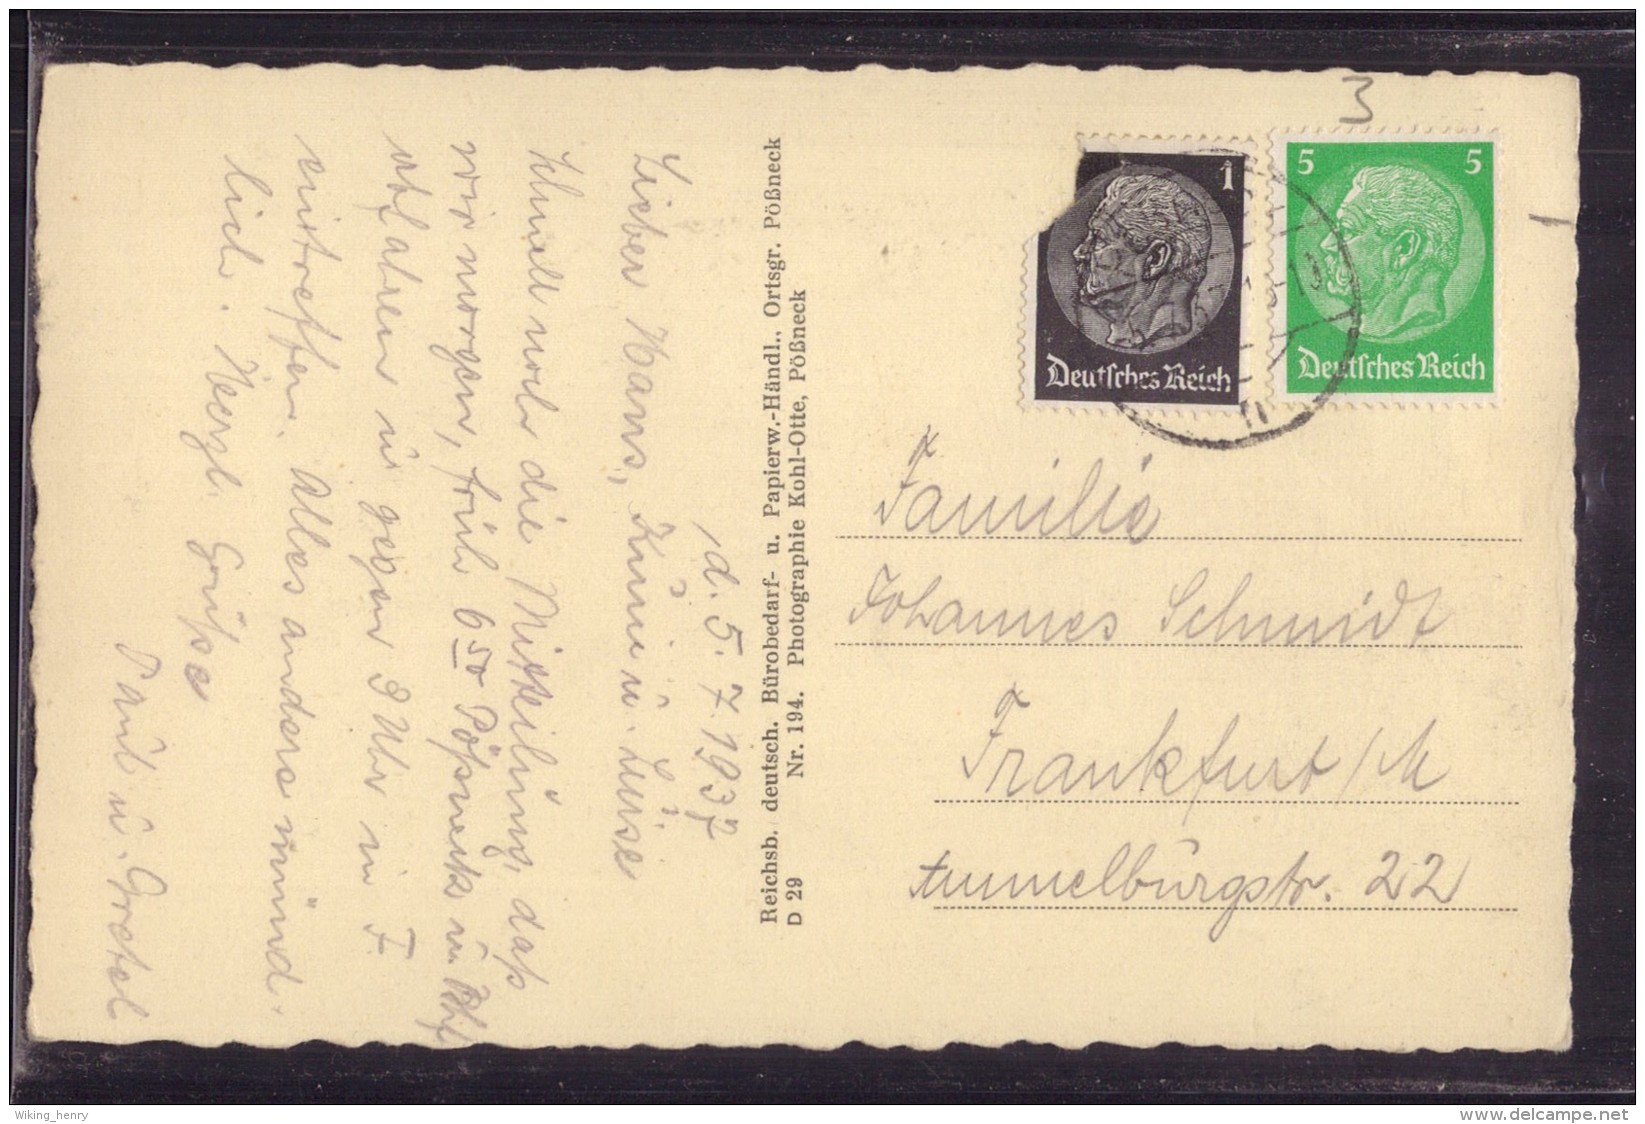 d. 5.7.1937
Lieber Hans, Änne u. Luise
Schnell noch die Mitteilung, daß
wir morgen, früh 6 50 Pößneck u. Bhf
abfahren u. gegen 3 Uhr in F.
eintreffen. Alles andere münd-
lich. Herzl. Grüße
Paul u. Gretel
Reichsb. deutsch. Bürobedarf- u. Papierw.-Händl., Ortsgr. Pößneck
D 29 Nr. 194. Photographie Kohl-Otte, Pößneck
3
1
1
Deutsches Reich
5 5
Deutsches Reich
Familie
Johannes Schmidt
Frankfurt/M
22
Wiking_henry
www.delcampe.net